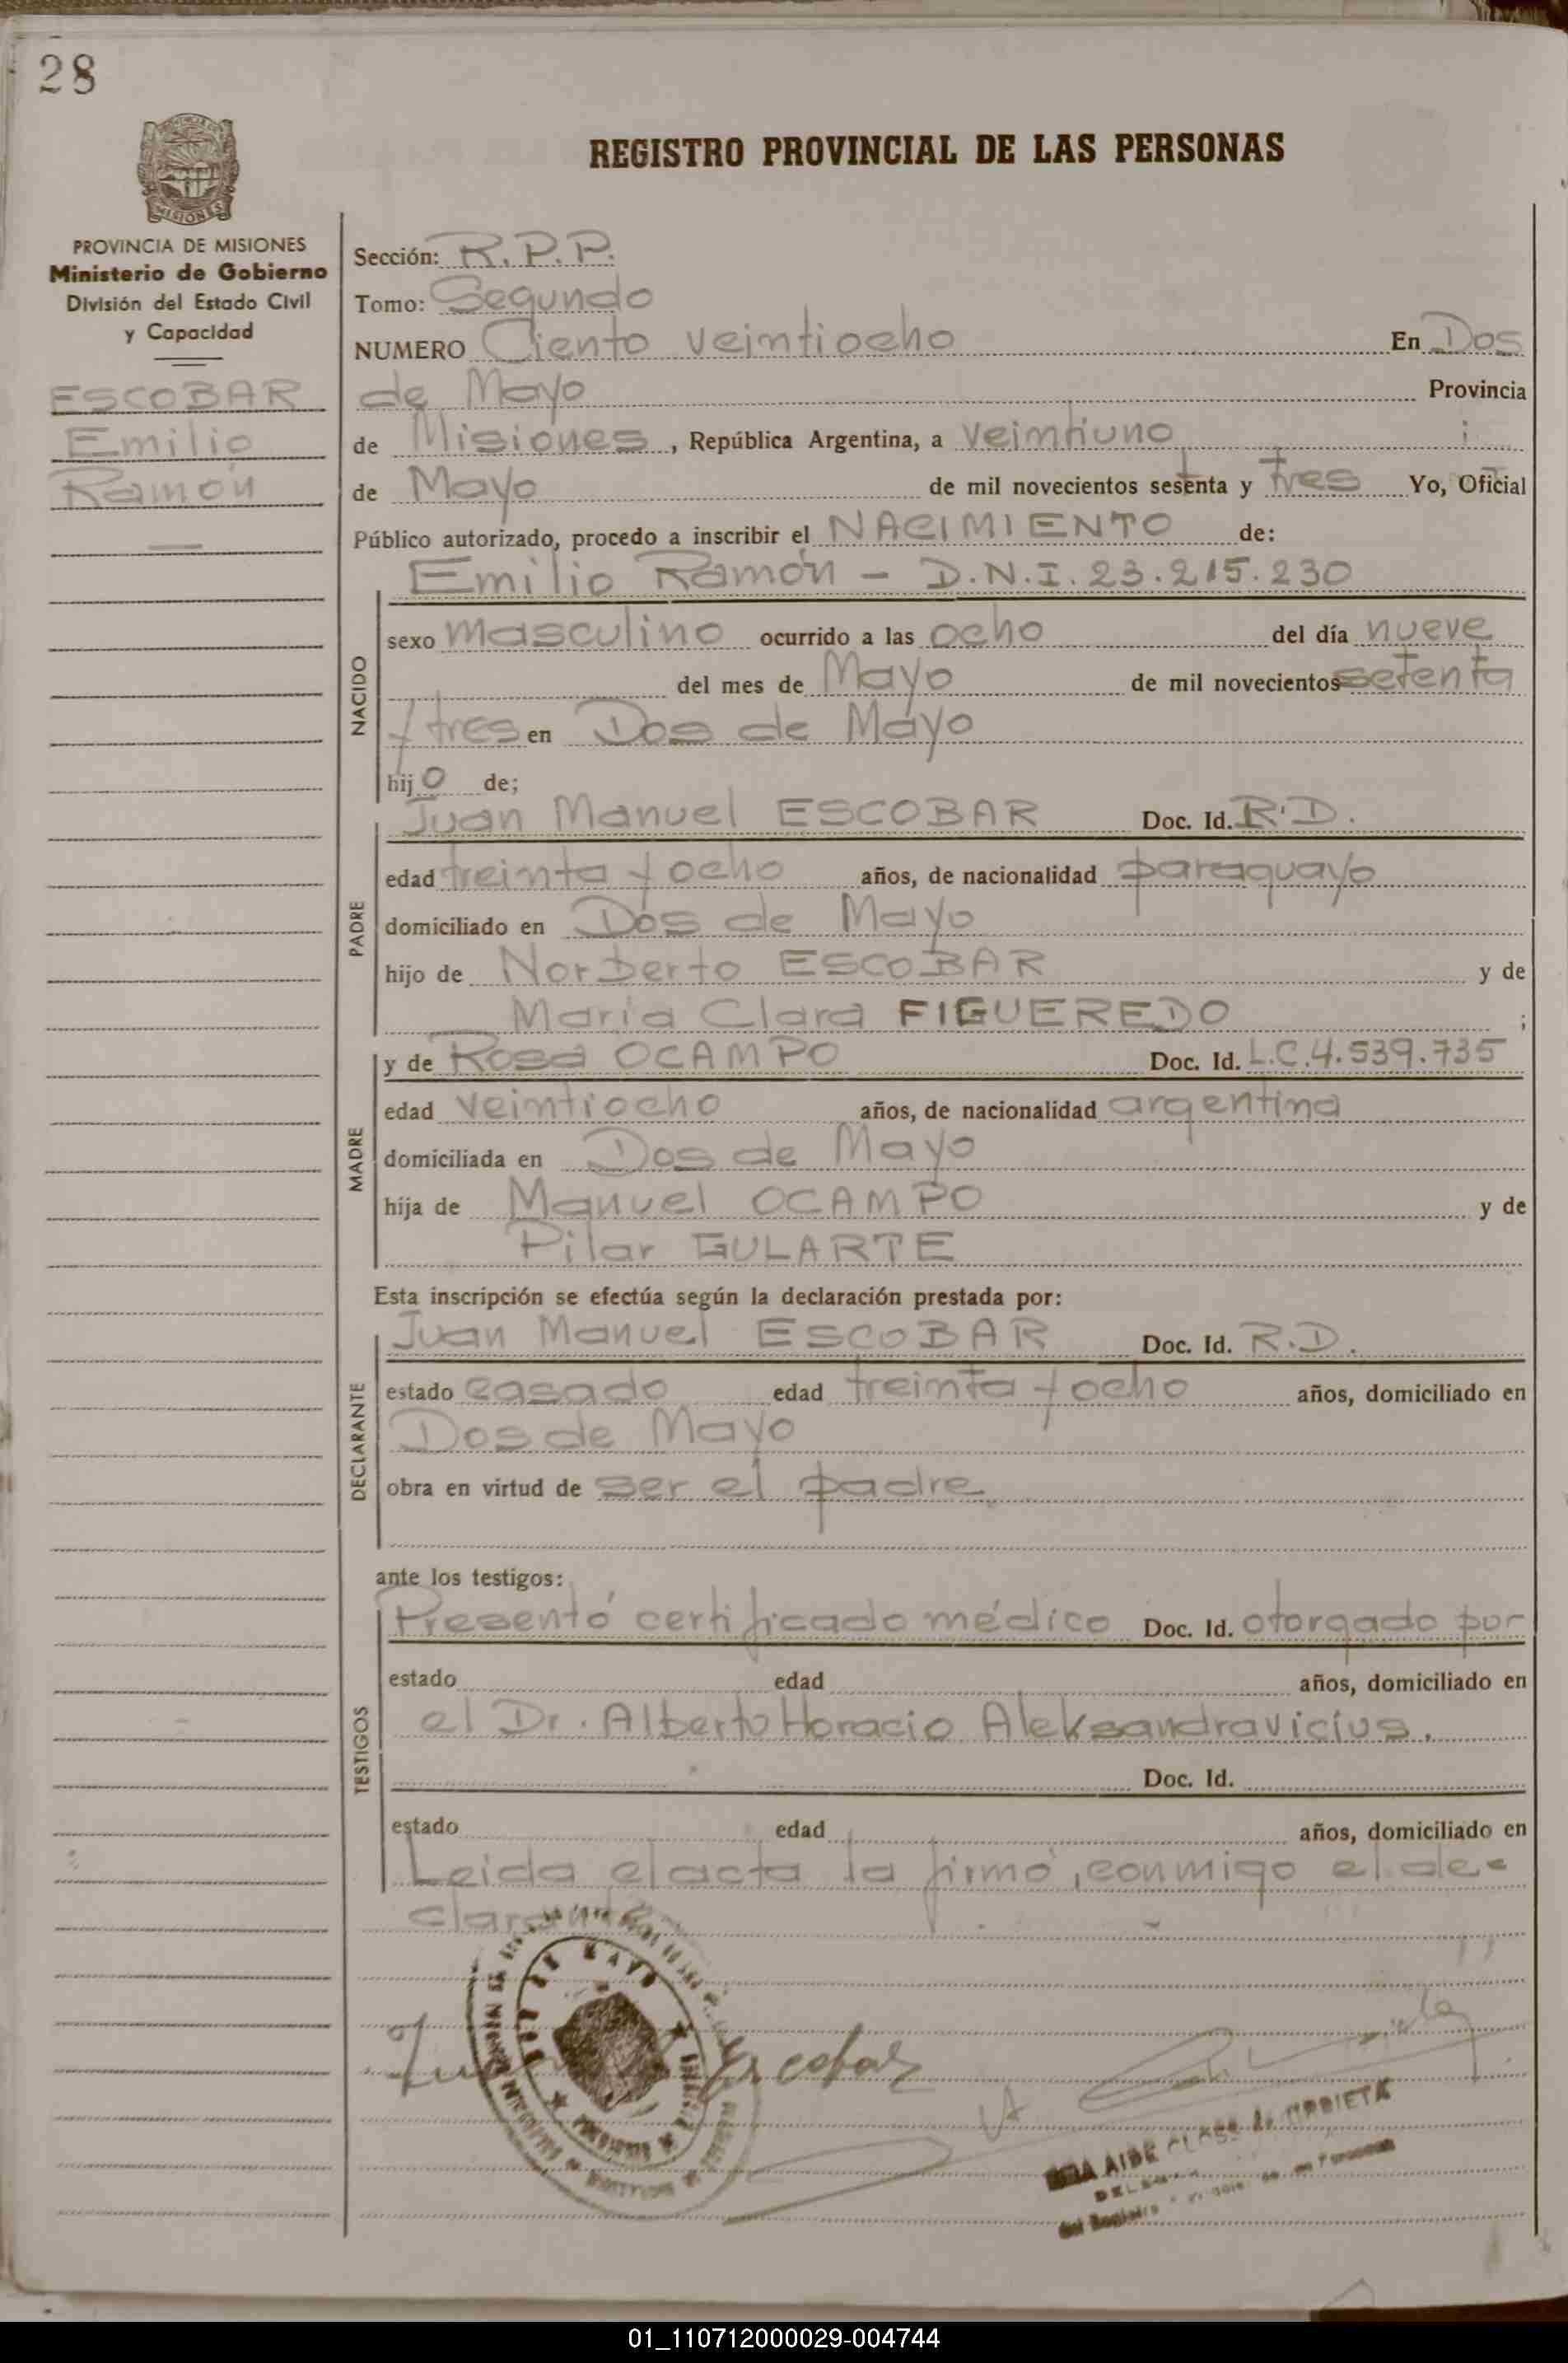 28
MISIONES
PROVINCIA DE MISIONES
Ministerio de Gobierno
División del Estado Civil
y Capacidad
ESCOBAR
Emilio
Ramón
REGISTRO PROVINCIAL DE LAS PERSONAS
Sección: R.P.P.
Tomo: Segundo
NUMERO Ciento veintiocho En Dos
de Mayo Provincia
de Misiones, República Argentina, a veintiuno
de Mayo de mil novecientos sesenta y tres Yo, Oficial
Público autorizado, procedo a inscribir el NACIMIENTO de:
Emilio Ramón - D.N.I. 23.215.230
NACIDO
sexo masculino ocurrido a las ocho del día nueve
del mes de Mayo de mil novecientos setenta
y tres en Dos de Mayo
hijo de;
PADRE
Juan Manuel ESCOBAR Doc. Id. R.D.
edad treinta y ocho años, de nacionalidad paraguayo
domiciliado en Dos de Mayo
hijo de Norberto ESCOBAR y de
María Clara FIGUEREDO ;
MADRE
y de Rosa OCAMPO Doc. Id. L.C.4.539.735
edad veintiocho años, de nacionalidad argentina
domiciliada en Dos de Mayo
hija de Manuel OCAMPO y de
Pilar GULARTE
Esta inscripción se efectúa según la declaración prestada por:
DECLARANTE
Juan Manuel ESCOBAR Doc. Id. R.D.
estado casado edad treinta y ocho años, domiciliado en
Dos de Mayo
obra en virtud de ser el padre
ante los testigos:
TESTIGOS
Presentó certificado médico Doc. Id. otorgado por
estado edad años, domiciliado en
el Dr. Alberto Horacio Aleksandravicius.
Doc. Id.
estado edad años, domiciliado en
Leida el acta la firmó, conmigo el de=
Escobar
AIDE
01_110712000029-004744